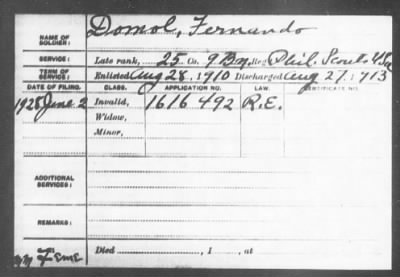 NAME OF SOLDIER: Domol, Fernando
SERVICE: Late rank, 25 Co. 9 Bn, Reg. Phil. Scouts
TERM OF SERVICE: Enlisted Aug 28, 1910 Discharged Aug 27, 1913
DATE OF FILING. CLASS. APPLICATION NO. LAW. CERTIFICATE NO.
1928 June 2 Invalid, 1616492 R.E.
Widow,
Minor,
ADDITIONAL SERVICES:
REMARKS:
Died , 1 , at